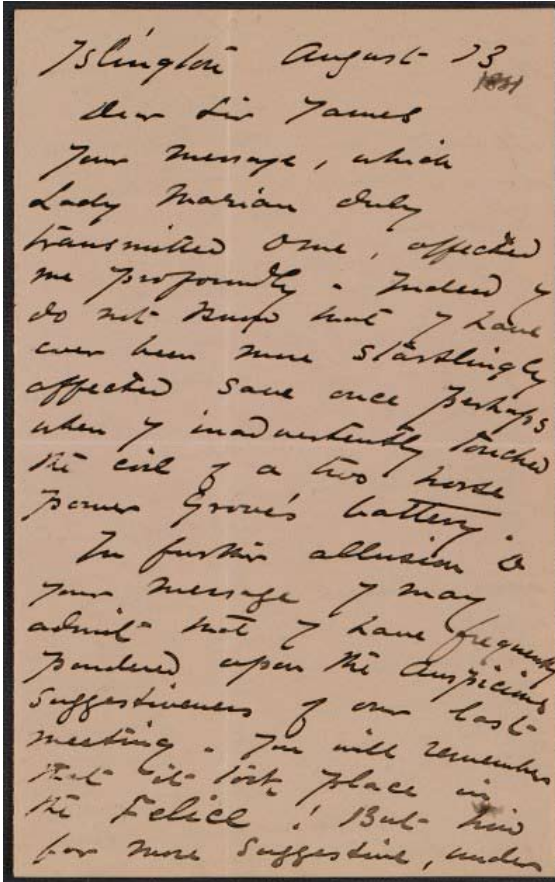 Islington August 13
1881
Dear Sir James
Your message, which
Lady Marian duly
transmitted to me, affected
me profoundly. Indeed I
do not know that I have
ever been more startlingly
affected save once perhaps
when I inadvertently touched
the coil of a two horse
power Grove's battery.
In further allusion to
your message I may
admit that I have frequently
pondered upon the auspicious
suggestiveness of our last
meeting. You will remember
that it took place in
the Felice! But how
far more suggestive, under